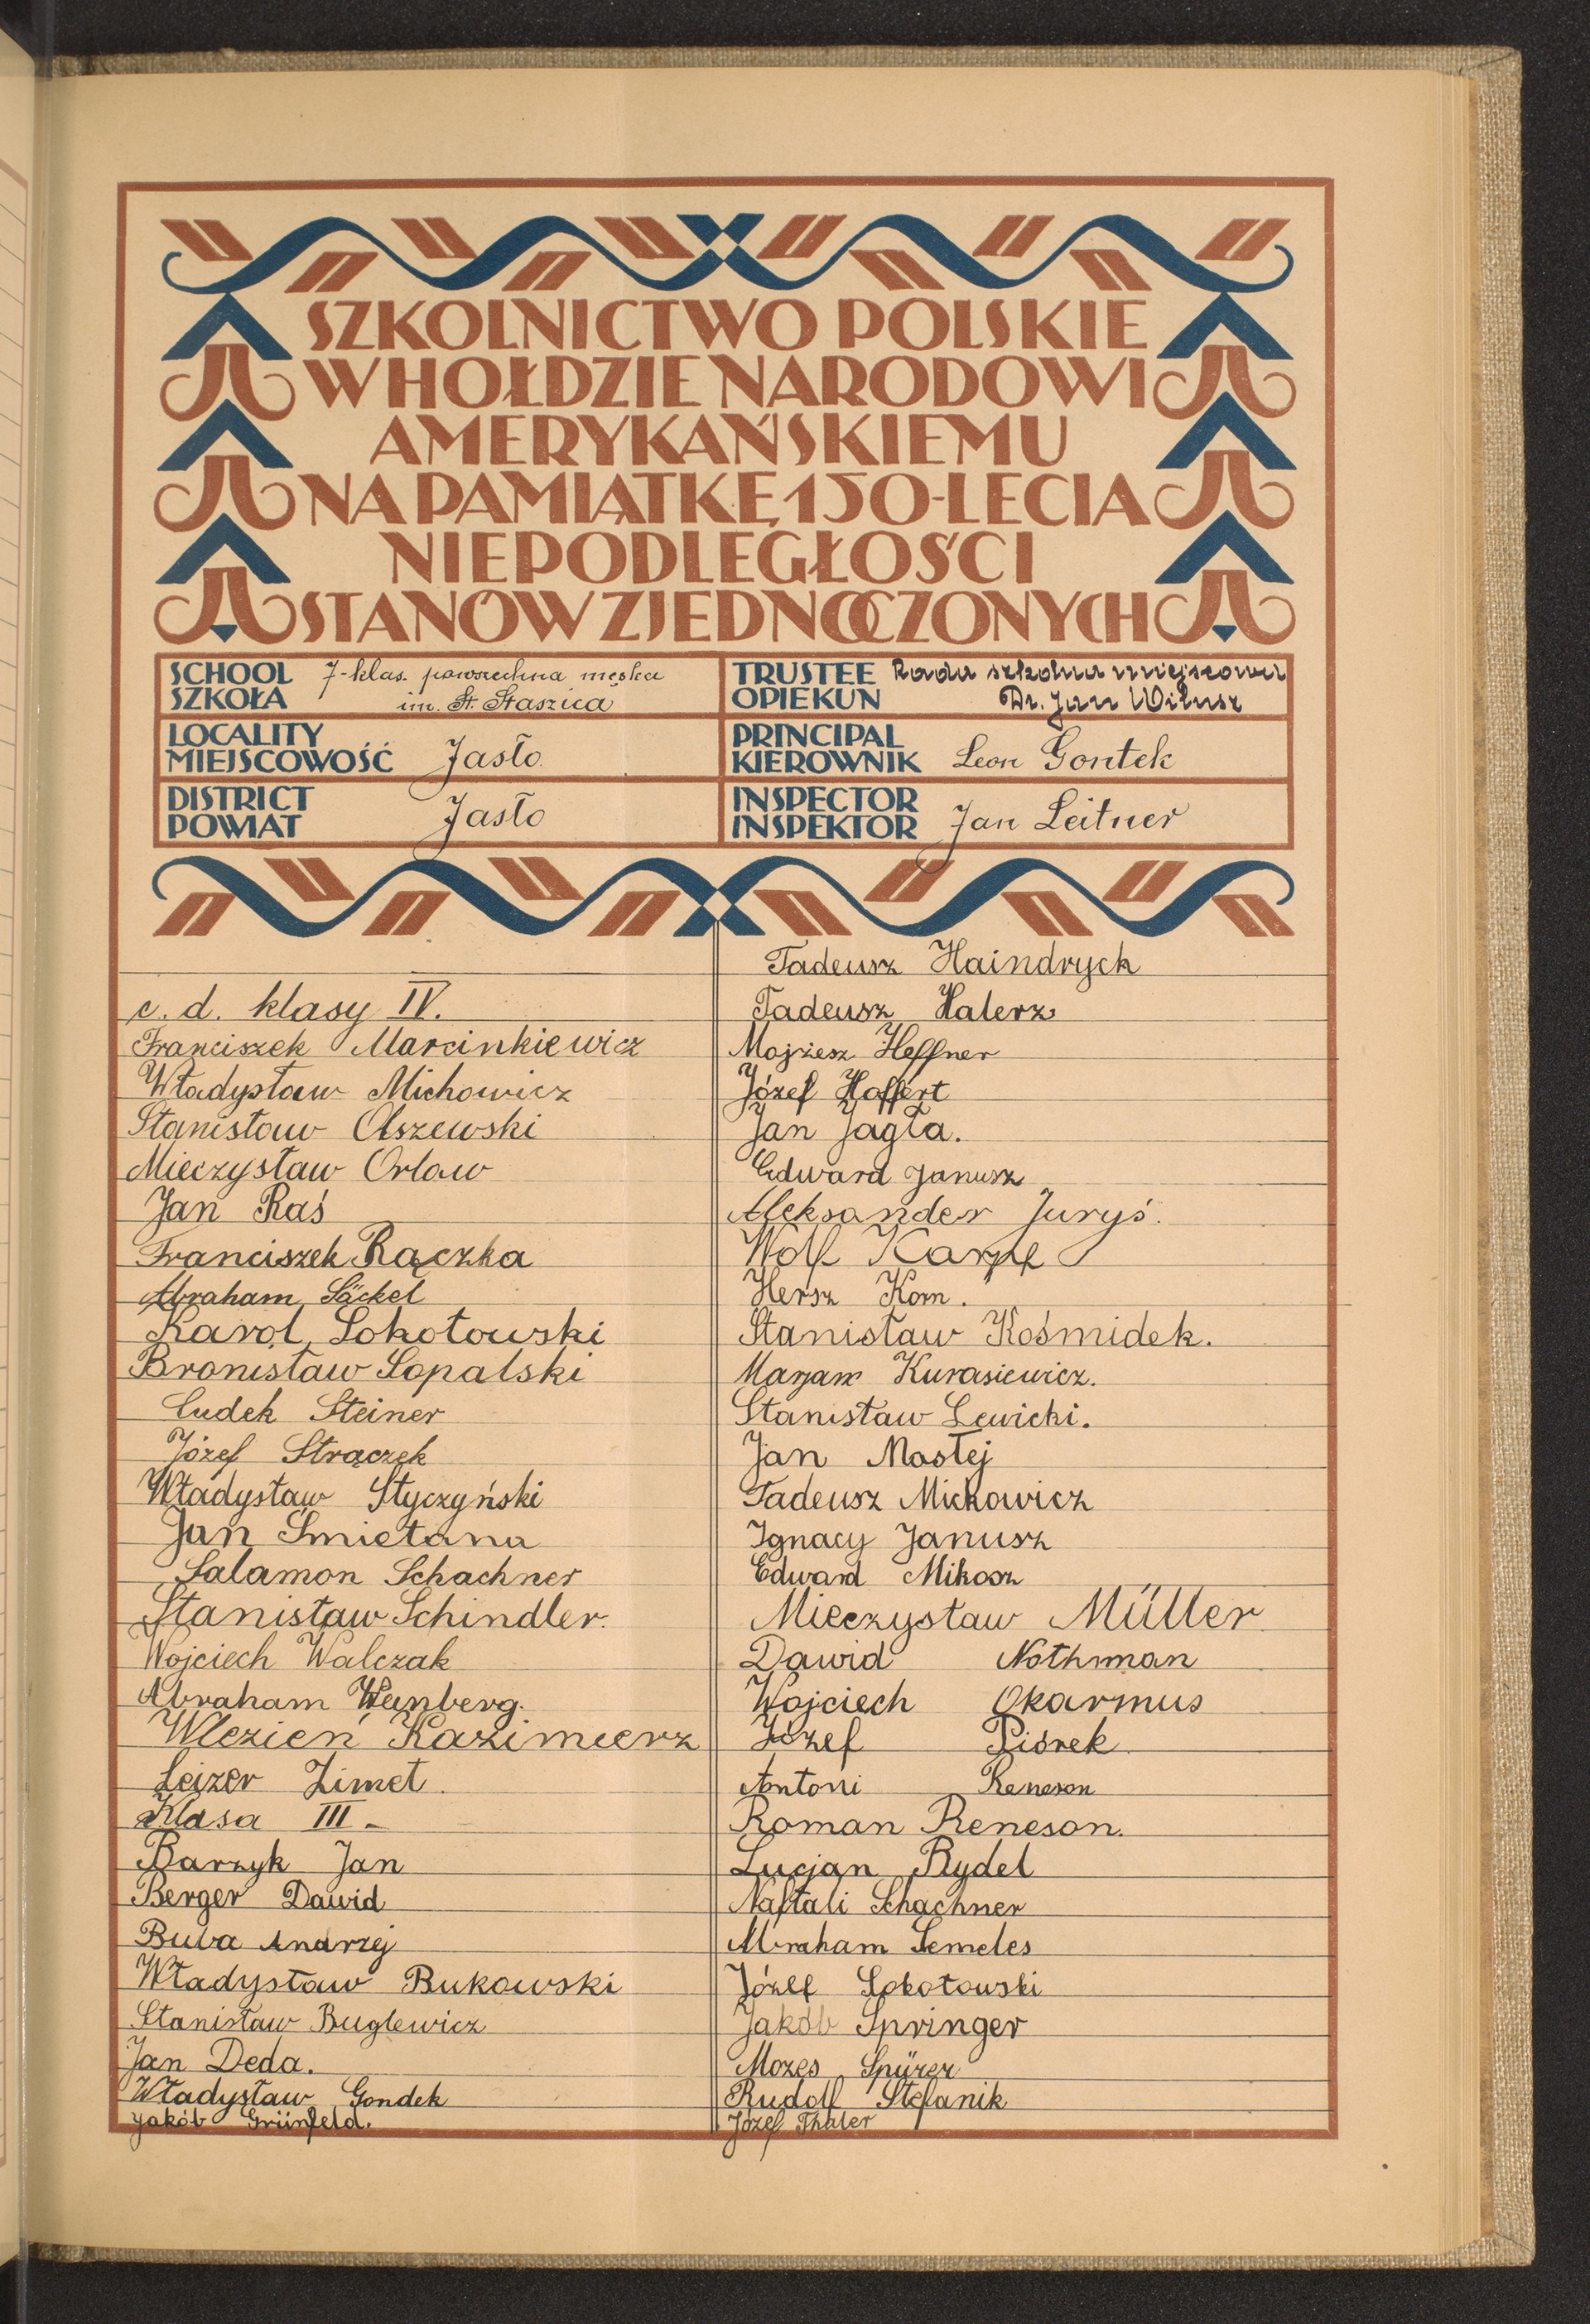 SZKOLNICTWO POLSKIE
W HOŁDZIE NARODOWI
AMERYKAŃSKIEMU
NA PAMIĄTKĘ 150-LECIA
NIEPODLEGŁOŚCI
STANÓW ZJEDNOCZONYCH
SCHOOL
SZKOŁA
7-klas. powszechna męska
im. St. Staszica
TRUSTEE
OPIEKUN
Rada szkolna miejscowa
Dr. Jan Wilusz
LOCALITY
MIEJSCOWOŚĆ
Jasło
PRINCIPAL
KIEROWNIK
Leon Gontek
DISTRICT
POWIAT
Jasło
INSPECTOR
INSPEKTOR
Jan Leitner
c. d. klasy IV.
Franciszek Marcinkiewicz
Władysław Michowicz
Stanisław Olszewski
Mieczysław Orlow
Jan Raś
Franciszek Rączka
Abraham Säckel
Karol Sokołowski
Bronisław Sopalski
Ludek Steiner
Józef Strączek
Władysław Styczyński
Jan Śmietana
Salamon Schachner
Stanisław Schindler.
Wojciech Walczak
Abraham Weinberg.
Wlezień Kazimierz
Leizer Zimet.
Klasa III -
Barzyk Jan
Berger Dawid
Buba Andrzej
Władysław Bukowski
Stanisław Buglewicz
Jan Deda.
Władysław Gondek
Jakób Grünfeld.
Tadeusz Haindrych
Tadeusz Halerz
Mojżesz Heffner
Józef Hoffert
Jan Jagła.
Edward Janusz
Aleksander Juryś.
Wolf Karpf
Hersz Korn.
Stanisław Kośmidek.
Marjam Kurasiewicz.
Stanisław Lewicki.
Jan Mastej
Tadeusz Michowicz
Ignacy Janusz
Edward Mikosz
Mieczysław Müller
Dawid Nothman
Wojciech Okarmus
Józef Piórek
Antoni Reneson
Roman Reneson.
Lucjan Rydel
Naftali Schachner
Abraham Semeles
Józef Sokołowski
Jakób Springer
Mozes Spürer
Rudolf Stefanik
Józef Thaler